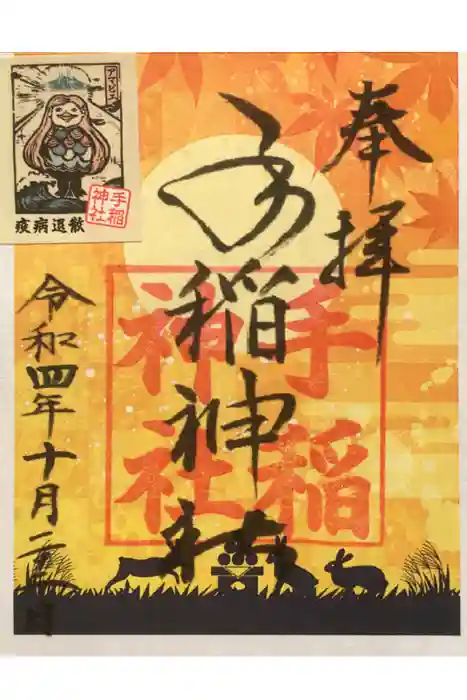 奉拝
手稲神社
手稲
神社
令和四年十月二
アマビエ
手稲
神社
疫病退散